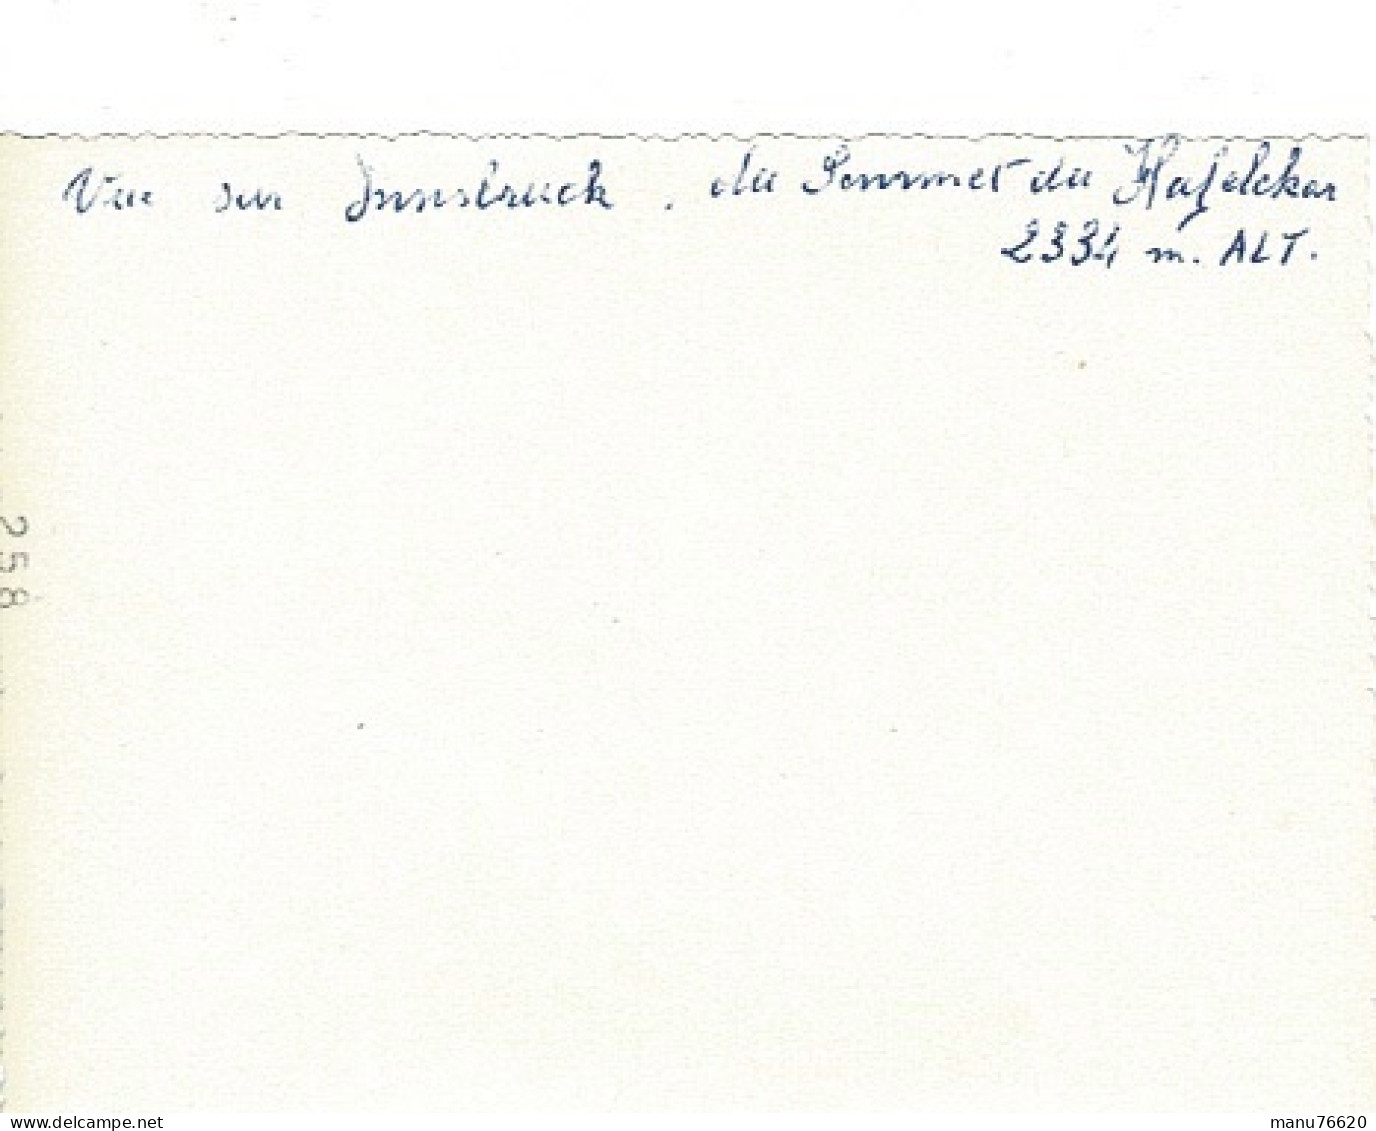 Vue sur Innsbruck. du Sommet du Hafelekar
2334 m. ALT.
258
delcampe.net
manu76620